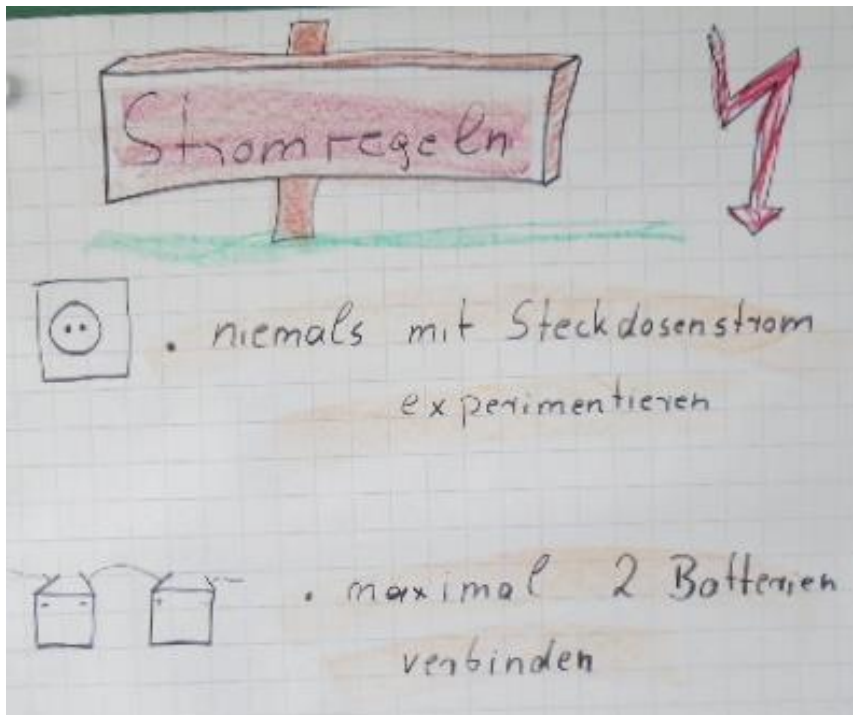 Stromregeln
• niemals mit Steckdosenstrom
experimentieren
• maximal 2 Batterien
verbinden